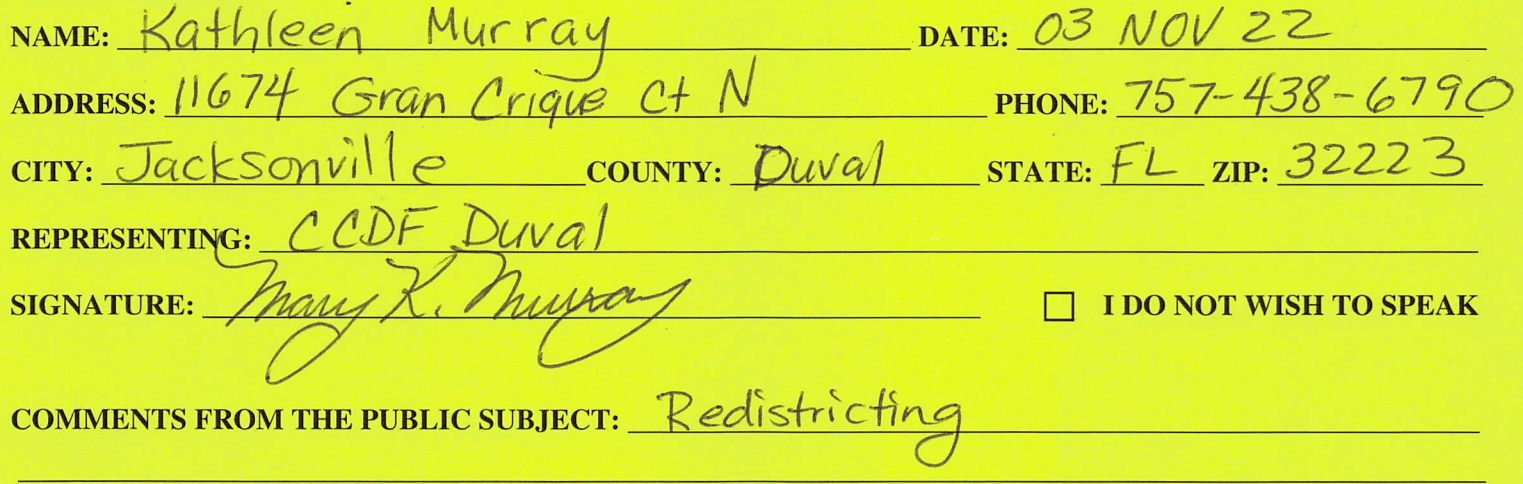 NAME: Kathleen Murray DATE: 03 NOV 22
ADDRESS: 11674 Gran Crique Ct N PHONE: 757-438-6790
CITY: Jacksonville COUNTY: Duval STATE: FL ZIP: 32223
REPRESENTING: CCDF Duval
SIGNATURE: Mary K. Murray ☐ I DO NOT WISH TO SPEAK
COMMENTS FROM THE PUBLIC SUBJECT: Redistricting